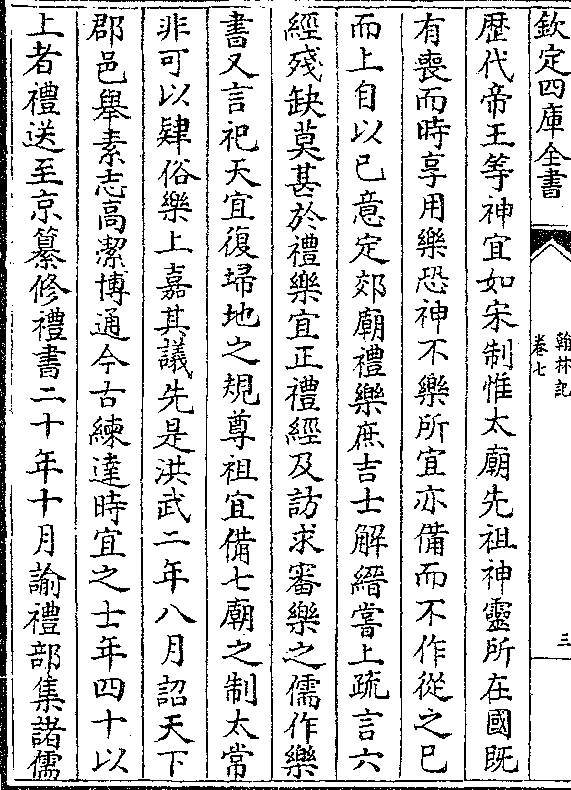 欽定四庫全書
翰林記
卷七
三
歴代帝王等神宜如宋制惟太廟先祖神靈所在國既
有喪而時享用樂恐神不樂所宜亦備而不作從之已
而上自以已意定郊廟禮樂庶吉士解縉嘗上疏言六
經殘缺莫甚於禮樂宜正禮經及訪求審樂之儒作樂
書又言祀天宜復埽地之規尊祖宜備七廟之制太常
非可以肄俗樂上嘉其議先是洪武二年八月詔天下
郡邑舉素志高潔博通今古練達時宜之士年四十以
上者禮送至京纂修禮書二十年十月諭禮部集諸儒